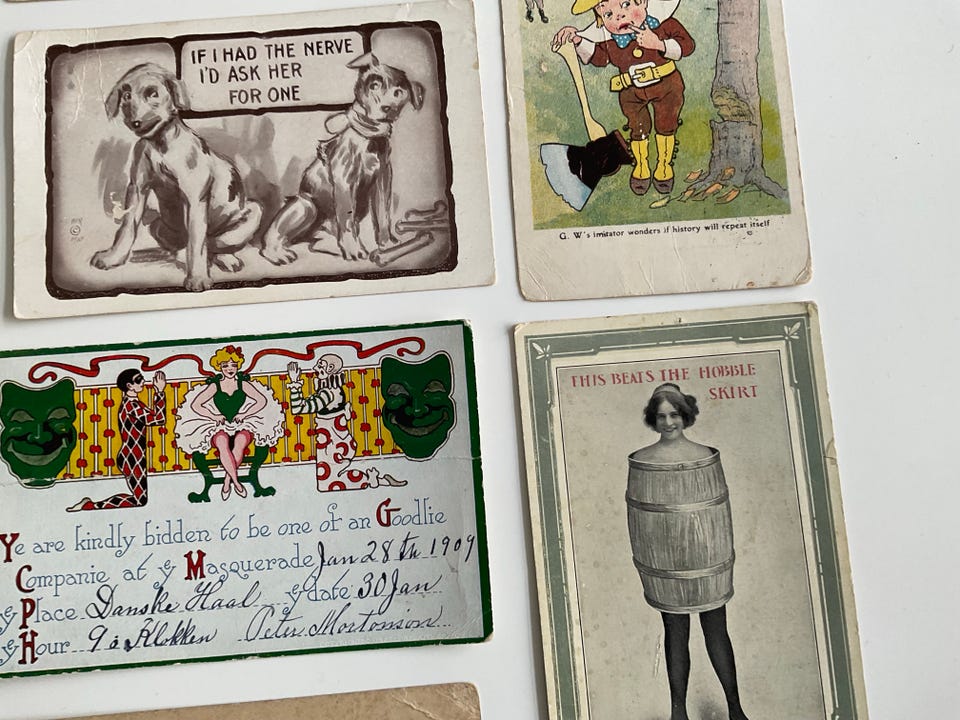 IF I HAD THE NERVE
I'D ASK HER
FOR ONE
G. W's imitator wonders if history will repeat itself
Ye are kindly bidden to be one of an Goodlie
Companie at ye Masquerade Jan 28th 1909
ye Place Danske Haal ye date 30 Jan
ye Hour 9 o Klokken Peter Mortonson
THIS BEATS THE HOBBLE
SKIRT